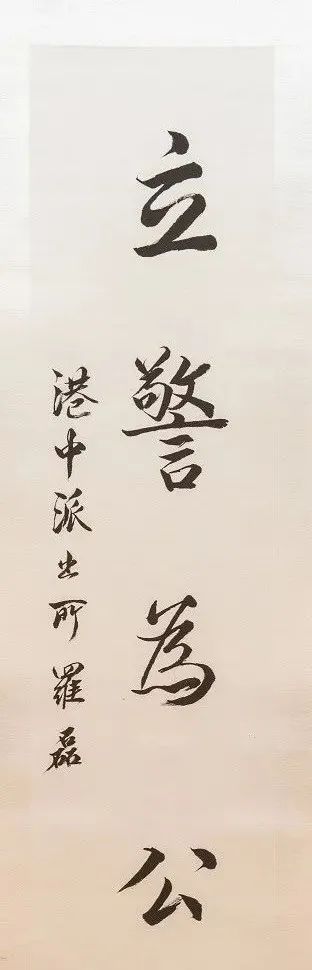 立警為公
港中派出所羅磊